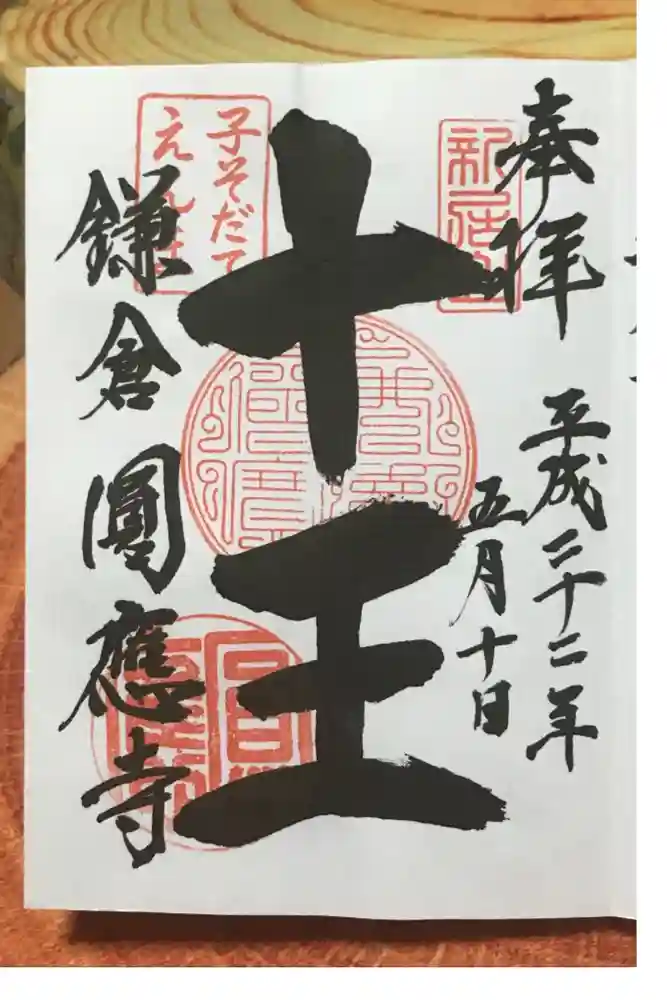 奉拝
平成二十二年
五月十日
新居山
十王
子そだて
えんま
鎌倉圓應寺